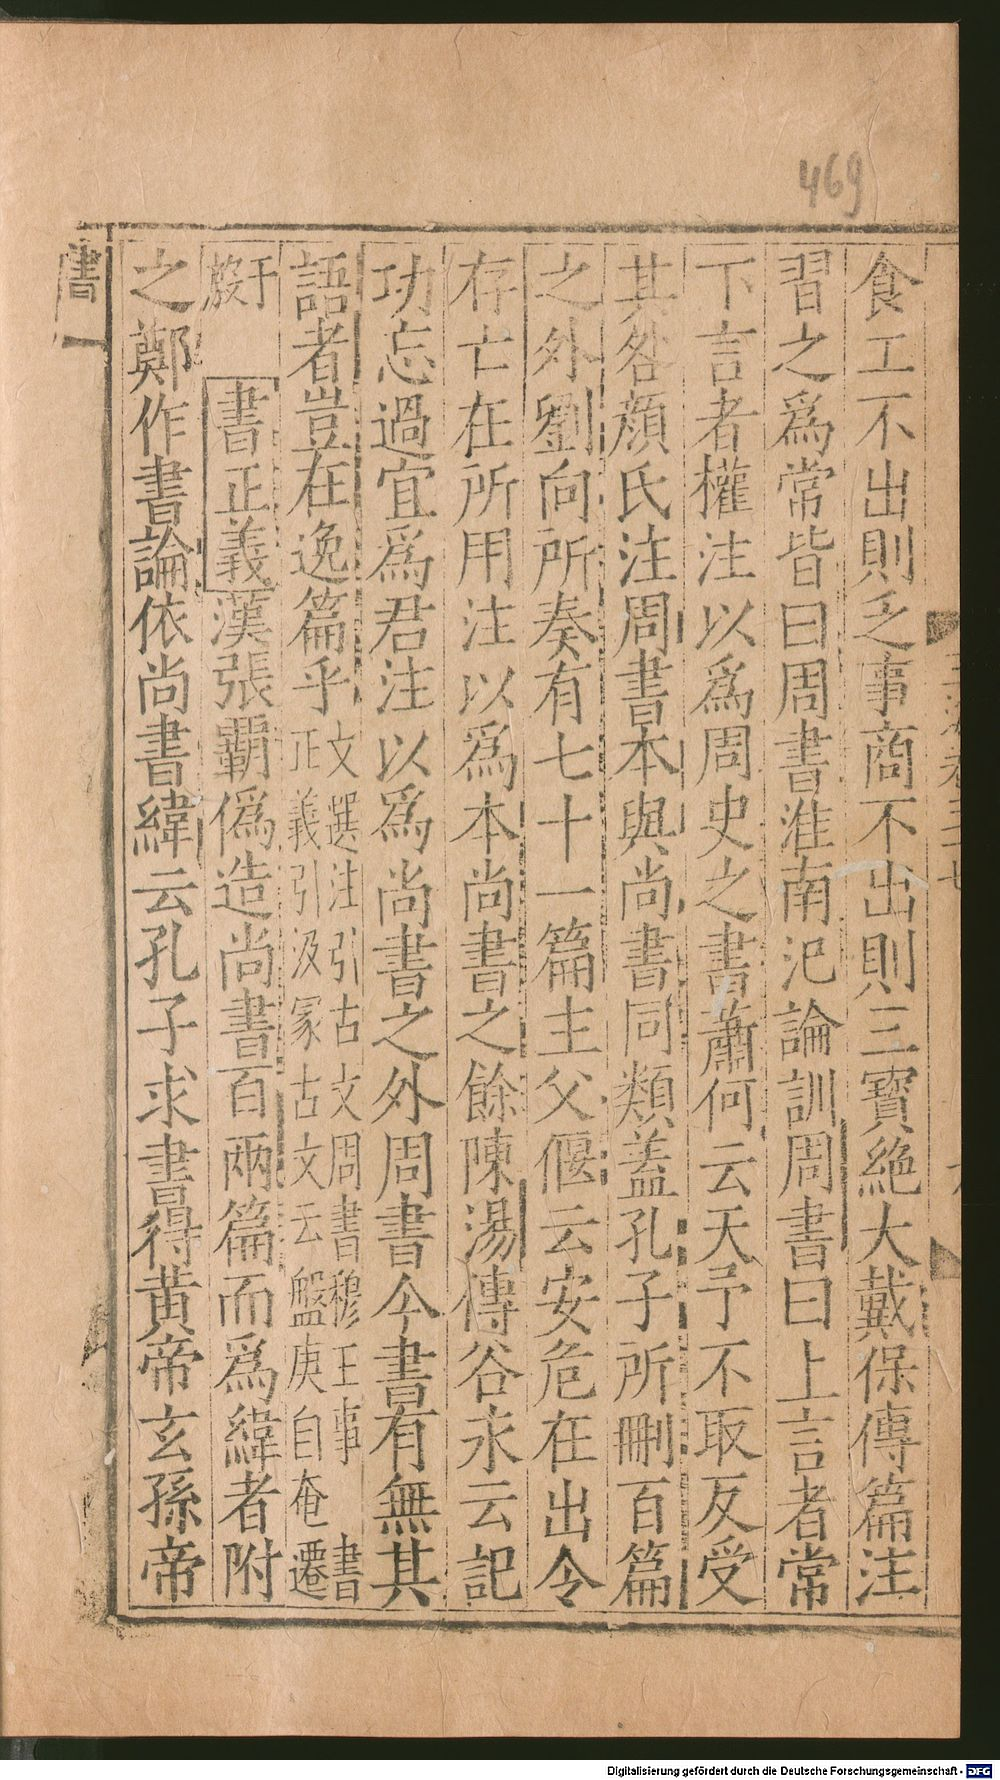 469
食工不出則乏事商不出則三寶絶大戴保傳篇注
習之爲常皆曰周書淮南氾論訓周書曰上言者常
下言者權注以爲周史之書蕭何云天予不取反受
其咎顔氏注周書本與尚書同類蓋孔子所刪百篇
之外劉向所奏有七十一篇主父偃云安危在出令
存亡在所用注以爲本尚書之餘陳湯傳谷永云記
功忘過宜爲君注以爲尚書之外周書今書有無其
語者豈在逸篇乎文選注引古文周書穆王事 書
正義引汲冢古文云盤庚自奄遷
于
殷
書正義漢張霸僞造尚書百兩篇而爲緯者附
之鄭作書論依尚書緯云孔子求書得黄帝玄孫帝
書一
Digitalisierung gefördert durch die Deutsche Forschungsgemeinschaft - DFG